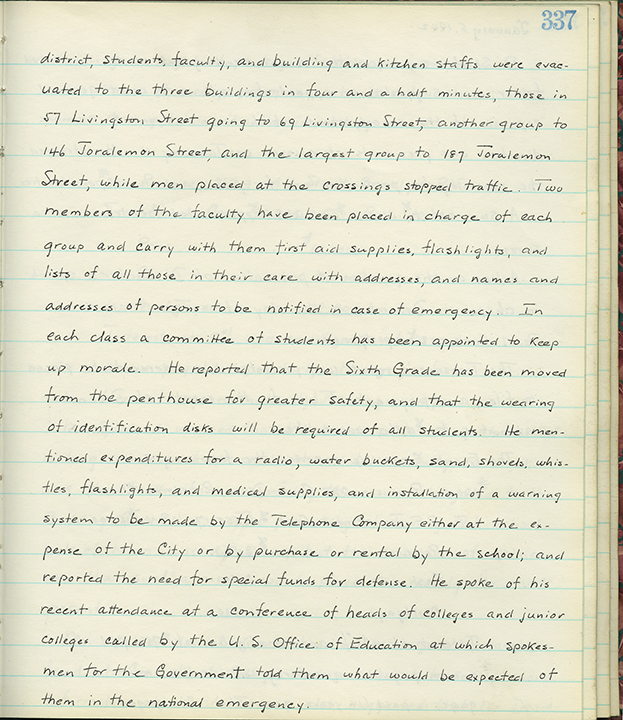 337
district, students, faculty, and building and kitchen staffs were evac-
uated to the three buildings in four and a half minutes, those in
57 Livingston Street going to 69 Livingston Street, another group to
146 Joralemon Street, and the largest group to 187 Joralemon
Street, while men placed at the crossings stopped traffic. Two
members of the faculty have been placed in charge of each
group and carry with them first aid supplies, flashlights, and
lists of all those in their care with addresses, and names and
addresses of persons to be notified in case of emergency. In
each class a committee of students has been appointed to keep
up morale. He reported that the Sixth Grade has been moved
from the penthouse for greater safety, and that the wearing
of identification disks will be required of all students. He men-
tioned expenditures for a radio, water buckets, sand, shovels, whis-
tles, flashlights, and medical supplies, and installation of a warning
system to be made by the Telephone Company either at the ex-
pense of the City or by purchase or rental by the school; and
reported the need for special funds for defense. He spoke of his
recent attendance at a conference of heads of colleges and junior
colleges called by the U. S. Office of Education at which spokes-
men for the Government told them what would be expected of
them in the national emergency.